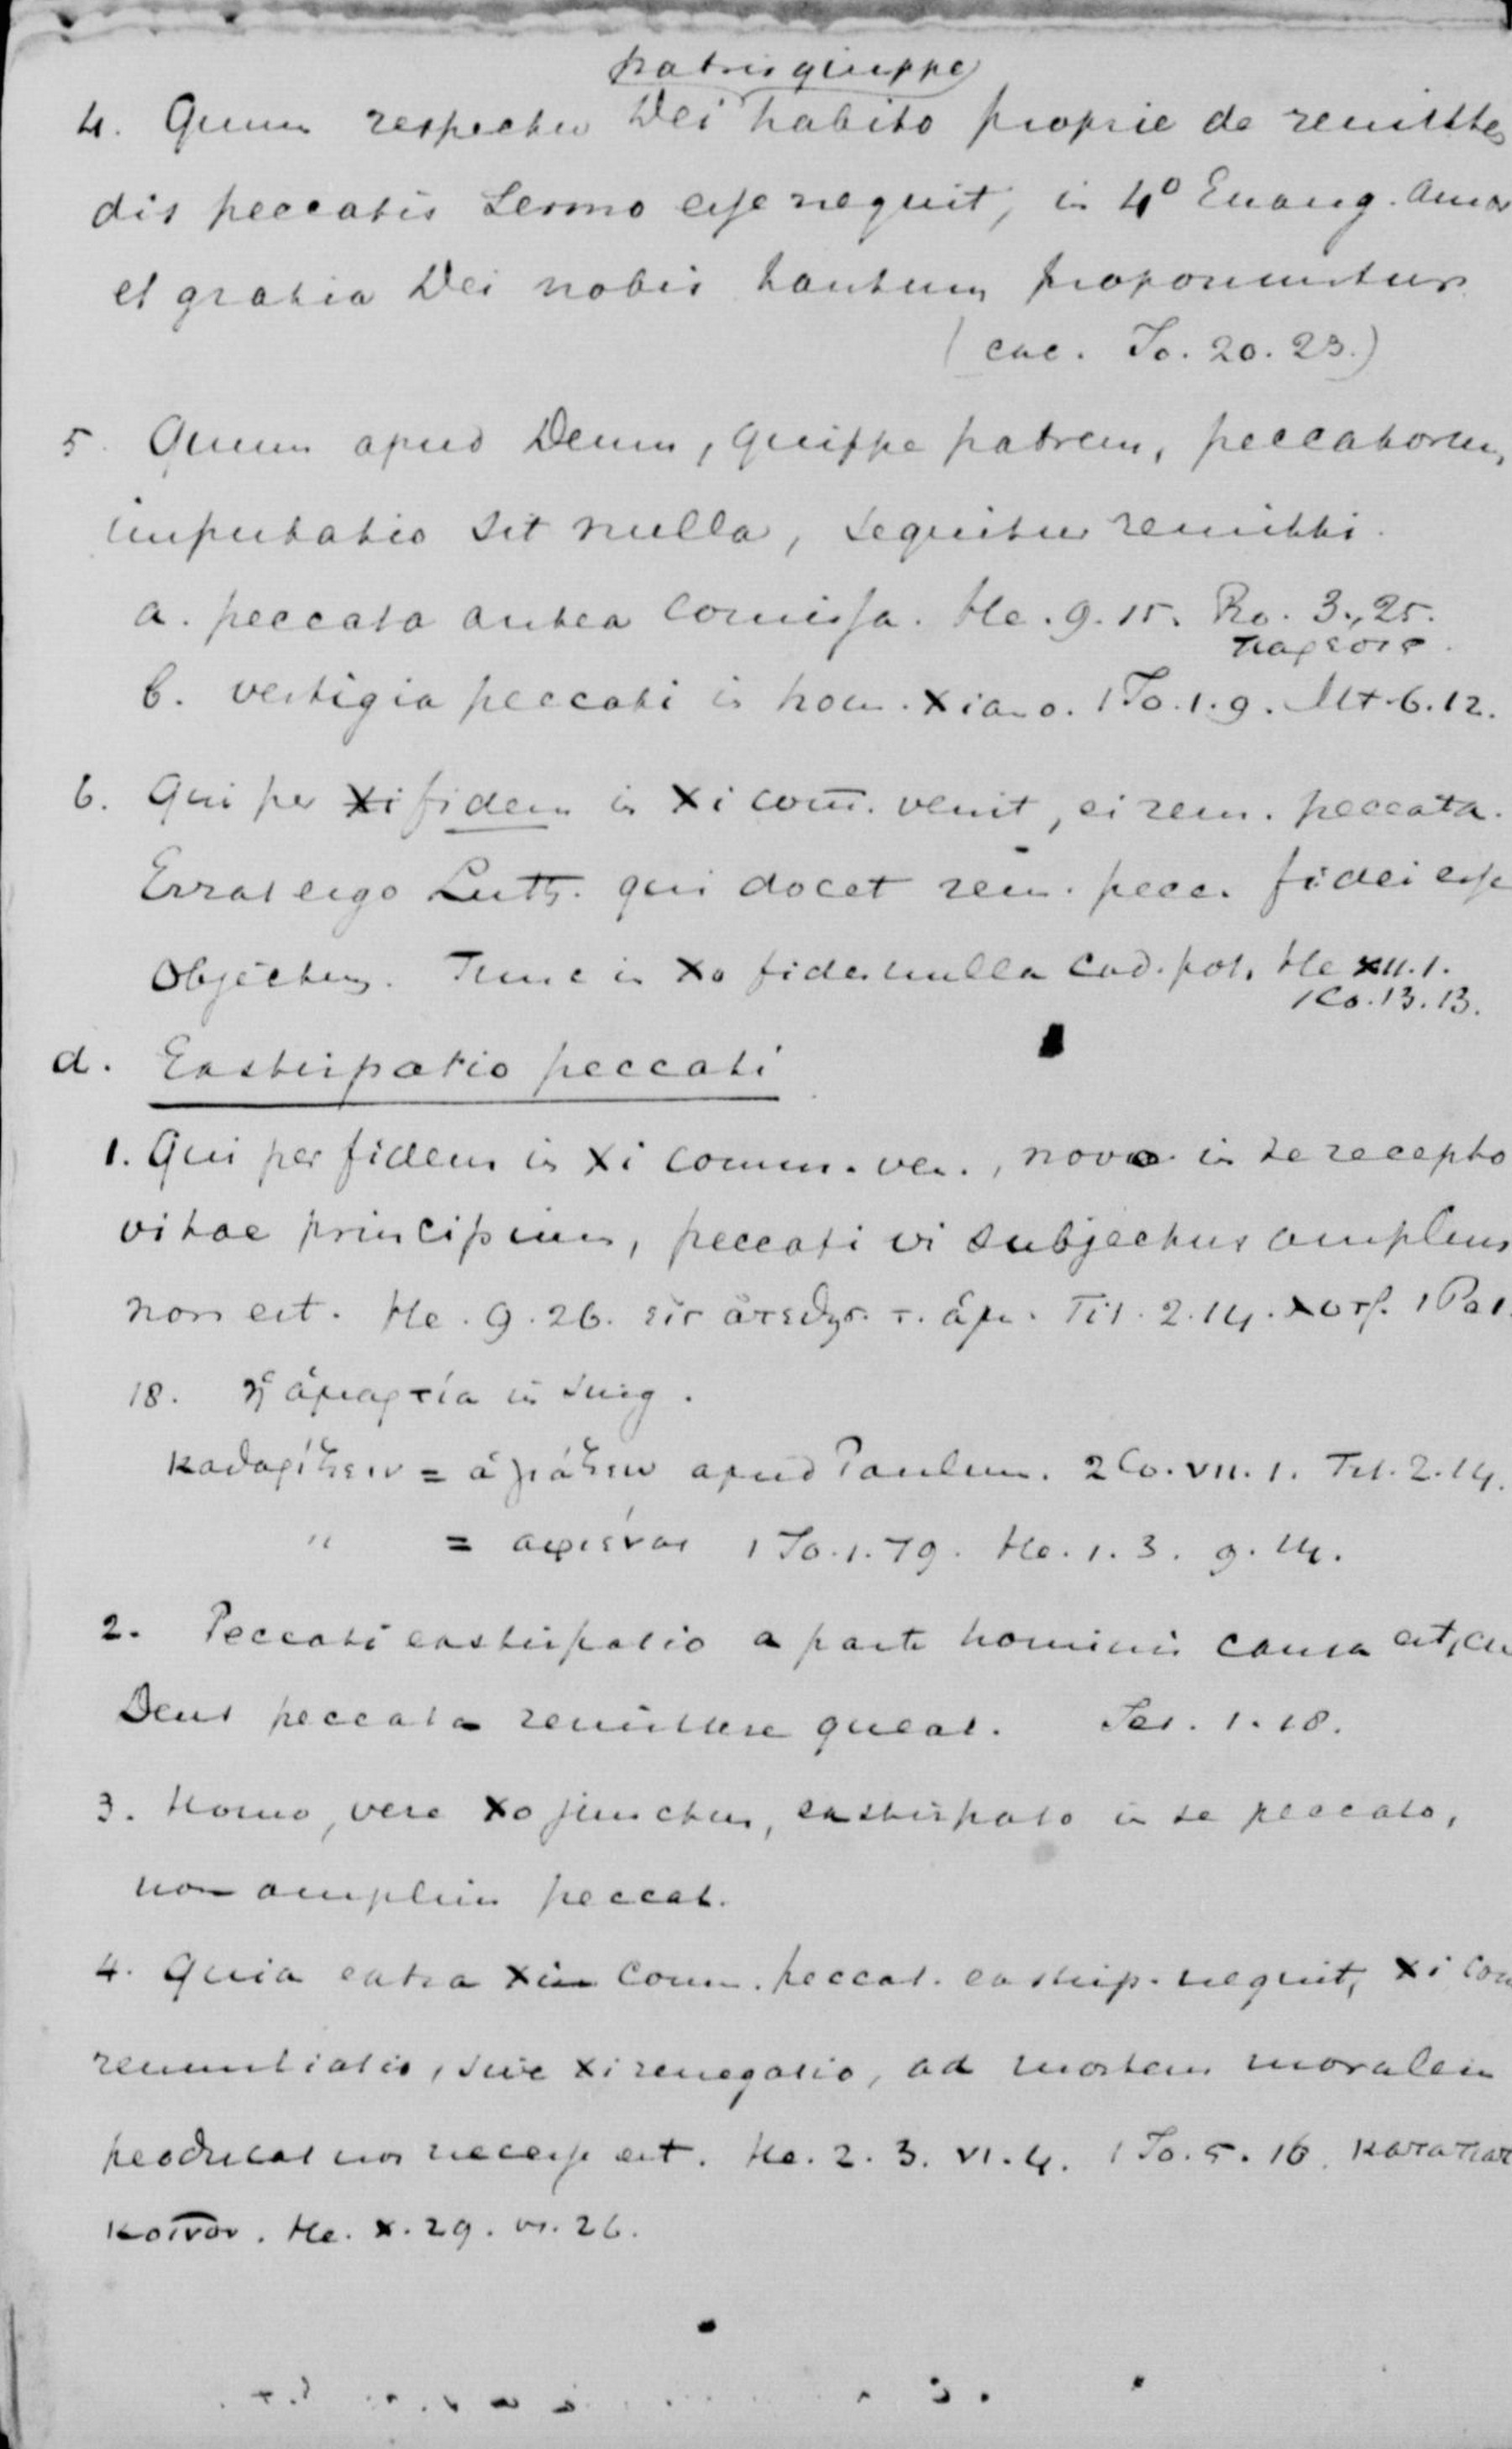 patris quippe
4. Quum respectu Dei habito proprie de remitte
dis peccatis sermo esse nequit, in 4º Euang. Amor
et gratia Dei nobis tantum proponuntur
(exc. Jo. 20. 23.)
5. Quum apud Deum, quippe patrem, peccatorum
imputatio sit nulla, sequitur remitti.
a. peccata antea comissa. He. 9. 15. Ro. 3., 25.
παρεσις.
b. vestigia peccati in hom. Xiano. 1 Jo. 1. 9. Mt. 6. 12.
6. Qui per Xi fidem in Xi com̄. venit, ei rem. peccata.
Errat ergo Luth. qui docet rem. pecc. fidei esse
objectum. Tunc in Xo fides nulla cad. pot. He XII. 1.
1 Co. 13. 13.
d. Exstirpatio peccati
1. Qui per fidem in Xi comm. ven., novo in se recepto
vitae principium, peccati vi subjectus amplius
non est. He. 9. 26. εἰς ἀτεθησ. τ. ἁμ. Tit. 2. 14. λυτρ. 1 Pe 1.
18. ἡ ἁμαρτία in sing.
καθαρίζειν = ἁγιάζειν apud Paulum. 2 Co. VII. 1. Tit. 2. 14.
" = αφιέναι 1 Jo. 1. 79. He. 1. 3. 9. 14.
2. Peccati exstirpatio a parte hominis causa est, cu
Deus peccata remittere queat. Jes. 1. 18.
3. Homo, vere Xo junctus, exstirpato in se peccato,
non amplius peccat.
4. Quia extra Xi comm. peccat. exstirp. nequit, Xi com
renuntiatio, sive Xi renegatio, ad mortem moralem
perducat nos necesse est. He. 2. 3. VI. 4. 1 Jo. 5. 16. καταπατ
κοινον. He. X. 29. vs. 26.